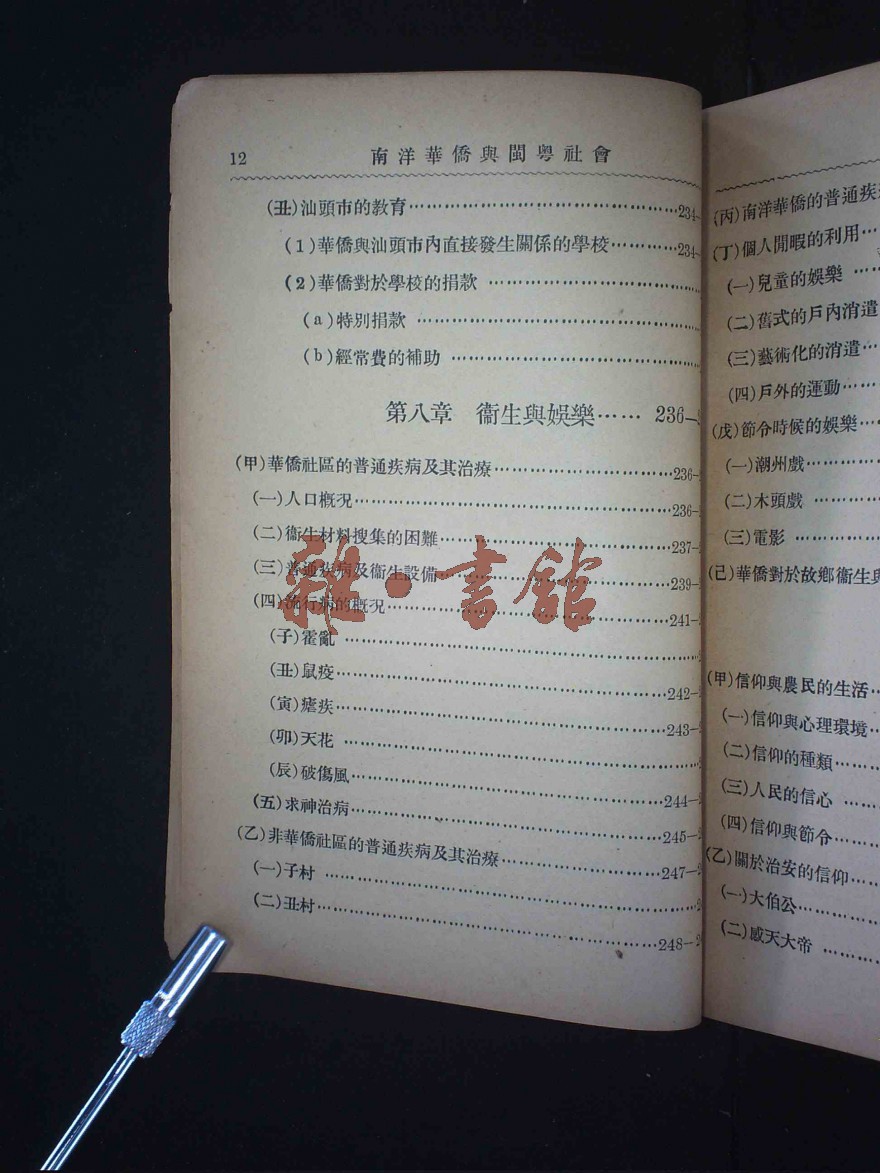 12 南洋華僑與閩粵社會
(丑)汕頭市的教育……………………………234-
(1)華僑與汕頭市內直接發生關係的學校…………234-
(2)華僑對於學校的捐款 ……………………
(a)特別捐款 ……………………………
(b)經常費的補助 ………………………
第八章 衞生與娛樂…… 236—
(甲)華僑社區的普通疾病及其治療…………………236-
(一)人口概況…………………………………236-
(二)衞生材料搜集的困難………………………237-
(三)普通疾病及衞生設備………………………239-
(四)流行病的概況……………………………241-
(子)霍亂 …………………………………
(丑)鼠疫……………………………………242-
(寅)瘧疾……………………………………243-
(卯)天花 …………………………………
(辰)破傷風…………………………………244-
(五)求神治病…………………………………245-
(乙)非華僑社區的普通疾病及其治療………………247-
(一)子村 ……………………………………
(二)丑村……………………………………248-
雜·書館
(丙)南洋華僑的普通疾
(丁)個人閒暇的利用…
(一)兒童的娛樂 …
(二)舊式的戶內消遣
(三)藝術化的消遣…
(四)戶外的運動……
(戊)節令時候的娛樂…
(一)潮州戲…………
(二)木頭戲 ………
(三)電影 …………
(己)華僑對於故鄉衞生
(甲)信仰與農民的生活…
(一)信仰與心理環境…
(二)信仰的種類……
(三)人民的信心 …
(四)信仰與節令……
(乙)關於治安的信仰…
(一)大伯公…………
(二)感天大帝 ……